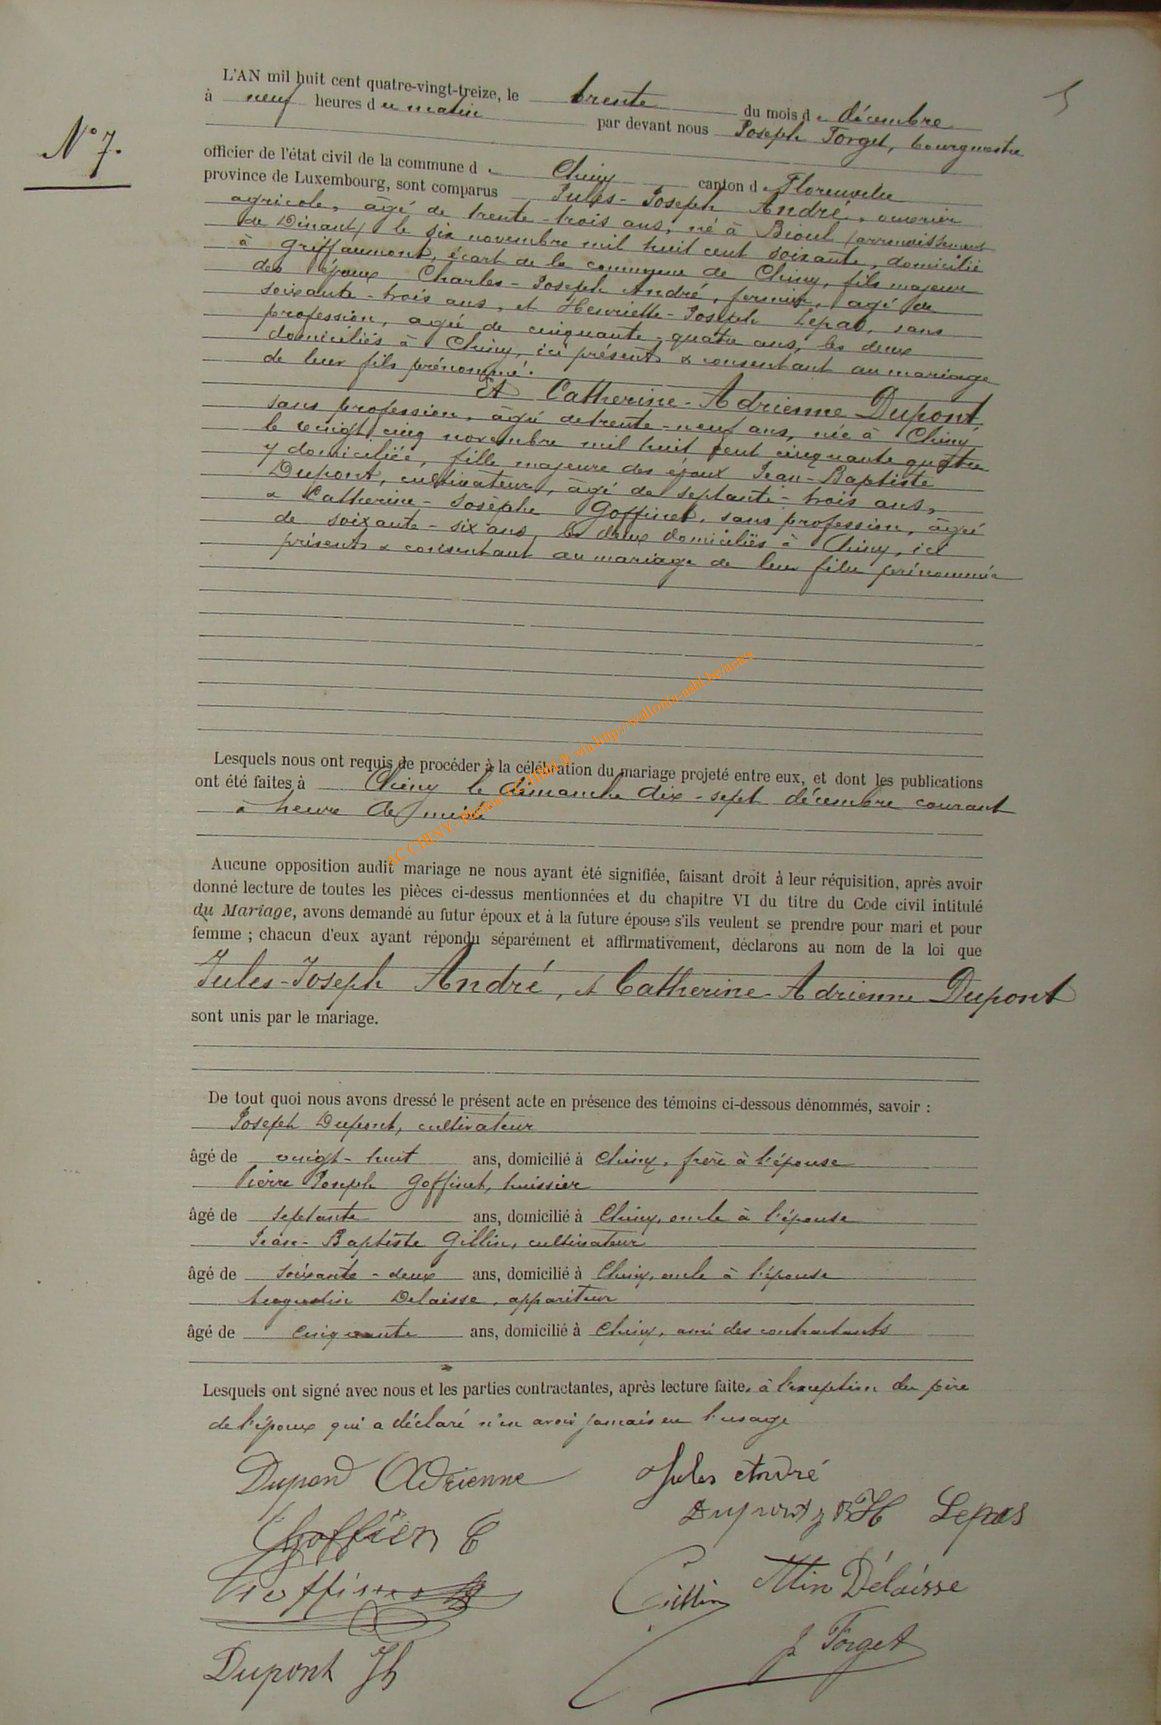 5
N° 7.
L'AN mil huit cent quatre-vingt-treize, le trente du mois de décembre
à neuf heures du matin par devant nous Joseph Forget, bourgmestre
officier de l'état civil de la commune de Chiny canton de Florenville
province de Luxembourg, sont comparus Jules-Joseph André, ouvrier
agricole, âgé de trente-trois ans, né à Bioul (arrondissement
de Dinant) le six novembre mil huit cent soixante, domicilié
à Griffaumont, écart de la commune de Chiny, fils majeur
des époux Charles-Joseph André, fermier, âgé de
soixante-trois ans, et Henriette-Joseph Lepas, sans
profession, agée de cinquante-quatre ans, les deux
domiciliés à Chiny, ici présents & consentant au mariage
de leur fils prénommé.
Et Catherine-Adrienne Dupont,
sans profession, âgée de trente-neuf ans, née à Chiny
le vingt cinq novembre mil huit cent cinquante quatre
y domiciliée, fille majeure des époux Jean-Baptiste
Dupont, cultivateur, âgé de septante-trois ans,
& Catherine-Josèphe Goffinet, sans profession, âgée
de soixante-six ans, les deux domiciliés à Chiny, ici
présents & consentant au mariage de leur fille prénommée
Lesquels nous ont requis de procéder à la célébration du mariage projeté entre eux, et dont les publications
ont été faites à Chiny le dimanche dix-sept décembre courant
à heure de midi
Aucune opposition audit mariage ne nous ayant été signifiée, faisant droit à leur réquisition, après avoir
donné lecture de toutes les pièces ci-dessus mentionnées et du chapitre VI du titre du Code civil intitulé
du Mariage, avons demandé au futur époux et à la future épouse s'ils veulent se prendre pour mari et pour
femme ; chacun d'eux ayant répondu séparément et affirmativement, déclarons au nom de la loi que
Jules-Joseph André, et Catherine-Adrienne Dupont
sont unis par le mariage.
De tout quoi nous avons dressé le présent acte en présence des témoins ci-dessous dénommés, savoir :
Joseph Dupont, cultivateur
âgé de vingt-huit ans, domicilié à Chiny, frère à l'épouse
Pierre Joseph Goffinet, huissier
âgé de septante ans, domicilié à Chiny, oncle à l'épouse
Jean-Baptiste Gillin, cultivateur
âgé de soixante-deux ans, domicilié à Chiny, oncle à l'épouse
Augustin Delaisse, appariteur
âgé de cinquante ans, domicilié à Chiny, ami des contractants
Lesquels ont signé avec nous et les parties contractantes, après lecture faite, à l'exception du père
de l'époux qui a déclaré n'en avoir jamais eu l'usage
Dupond Adrienne Jules André
Dupont J B H Lepas
Goffien C
Goffinet Gillin Atin Délaisse
J Forget
Dupont Jh